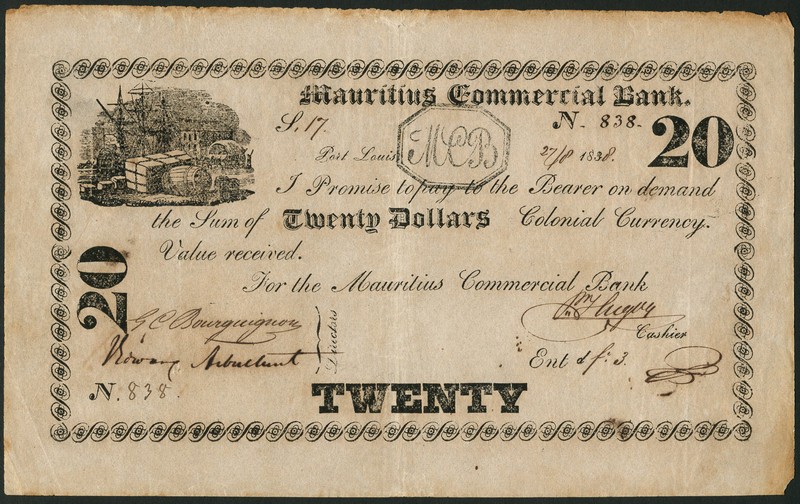 Mauritius Commercial Bank.
S. 17.
N. 838.
20
Port Louis
MCB
27/8 1838.
I Promise to pay to the Bearer on demand
the Sum of Twenty Dollars Colonial Currency.
Value received.
20
For the Mauritius Commercial Bank
G C Bourguignon
Directors
Cashier
Edward Arbuthnot
Ent d f. 3.
N. 838.
TWENTY